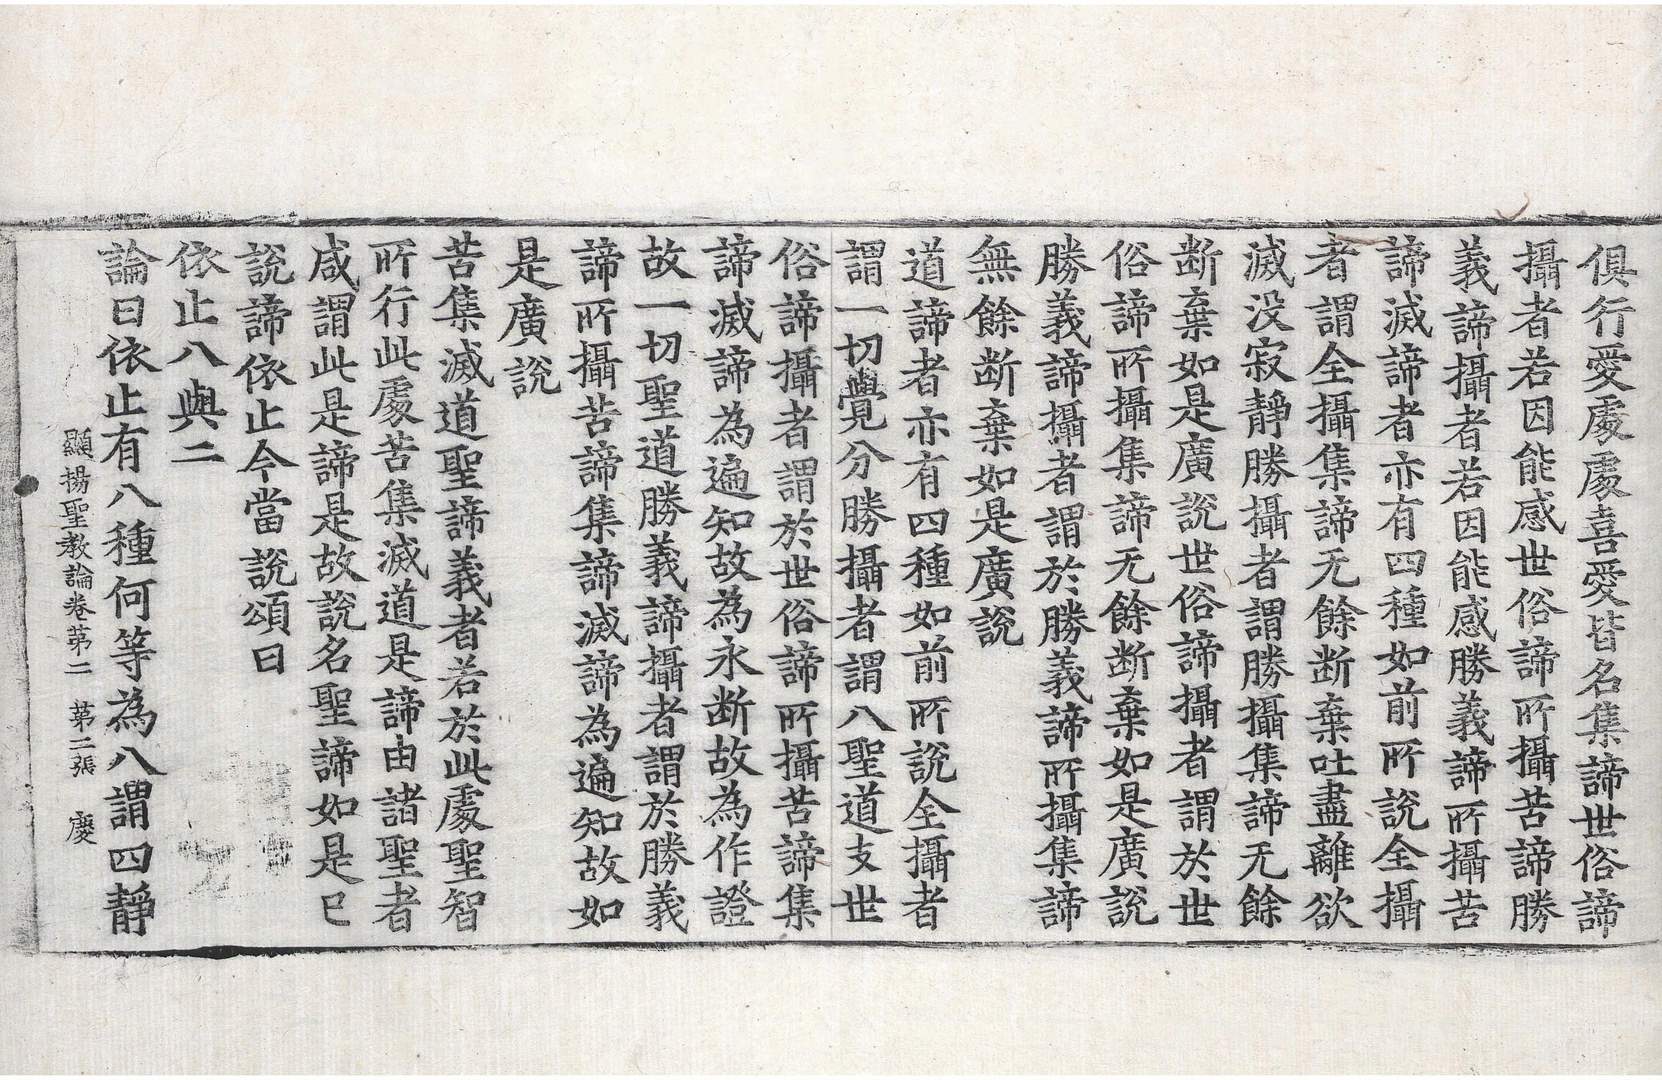 俱行愛處處喜愛皆名集諦世俗諦
攝者若因能感世俗諦所攝苦諦勝
義諦攝者若因能感勝義諦所攝苦
諦滅諦者亦有四種如前所說全攝
者謂全攝集諦无餘断棄吐盡離欲
滅没寂靜勝攝者謂勝攝集諦无餘
断棄如是廣說世俗諦攝者謂於世
俗諦所攝集諦无餘断棄如是廣說
勝義諦攝者謂於勝義諦所攝集諦
無餘断棄如是廣說
道諦者亦有四種如前所說全攝者
謂一切覺分勝攝者謂八聖道支世
俗諦攝者謂於世俗諦所攝苦諦集
諦滅諦為遍知故為永断故為作證
故一切聖道勝義諦攝者謂於勝義
諦所攝苦諦集諦滅諦為遍知故如
是廣說
苦集滅道聖諦義者若於此處聖智
所行此處苦集滅道是諦由諸聖者
咸謂此是諦是故說名聖諦如是已
說諦依止今當說頌曰
依止八與二
論曰依止有八種何等為八謂四靜
顯揚聖教論卷第二 第二張 慶